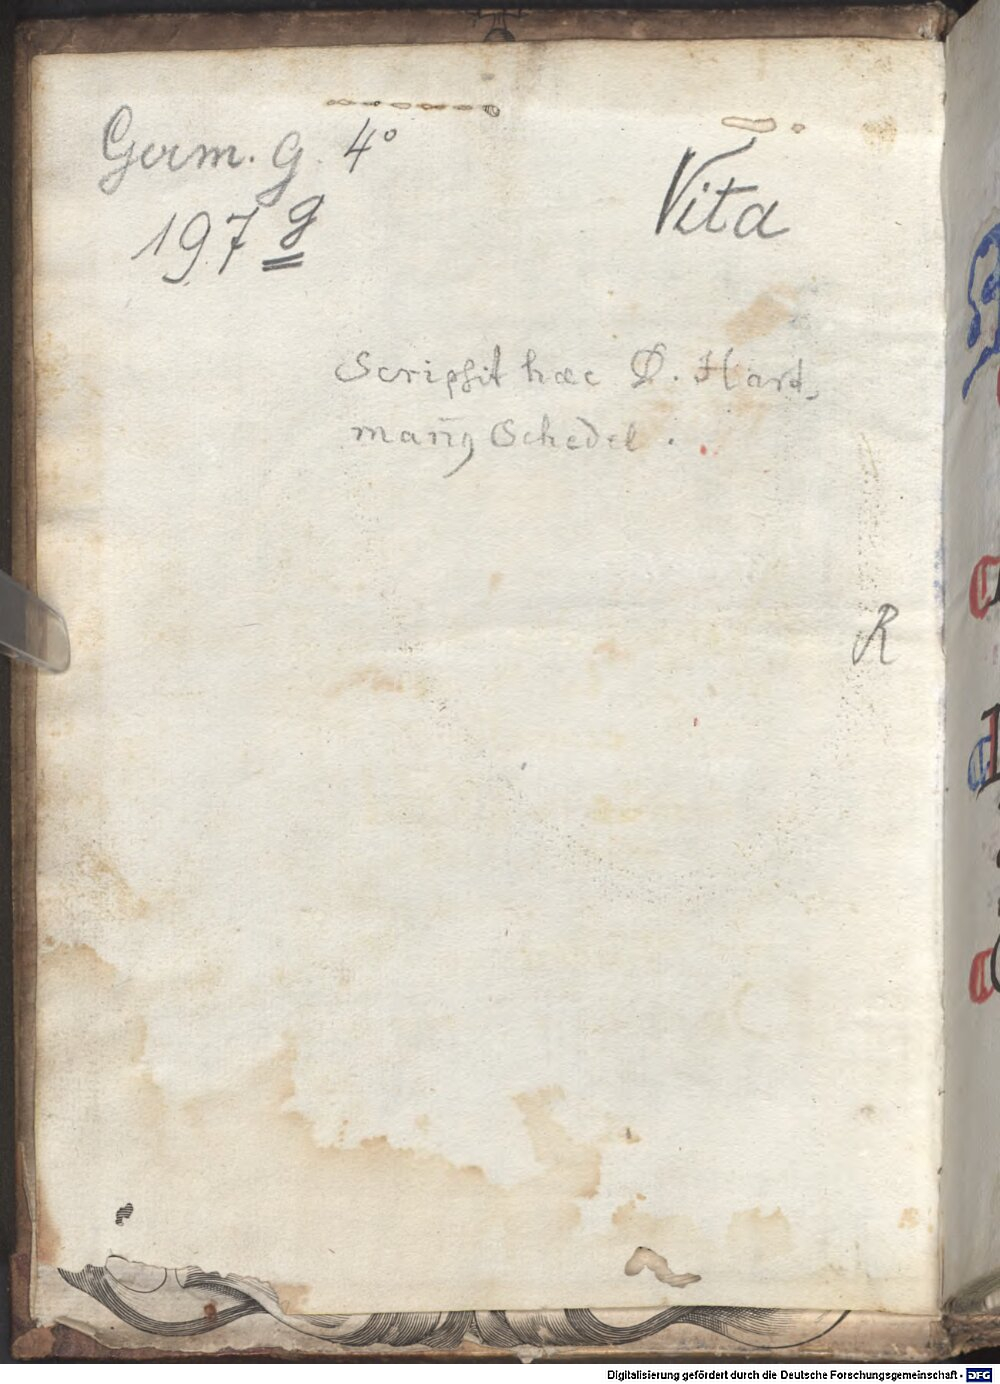 Germ. g. 4°
197 g
Vita
Scripsit hæc D. Hart,
mañ9 Schedel.
R
Digitalisierung gefördert durch die Deutsche Forschungsgemeinschaft - DFG